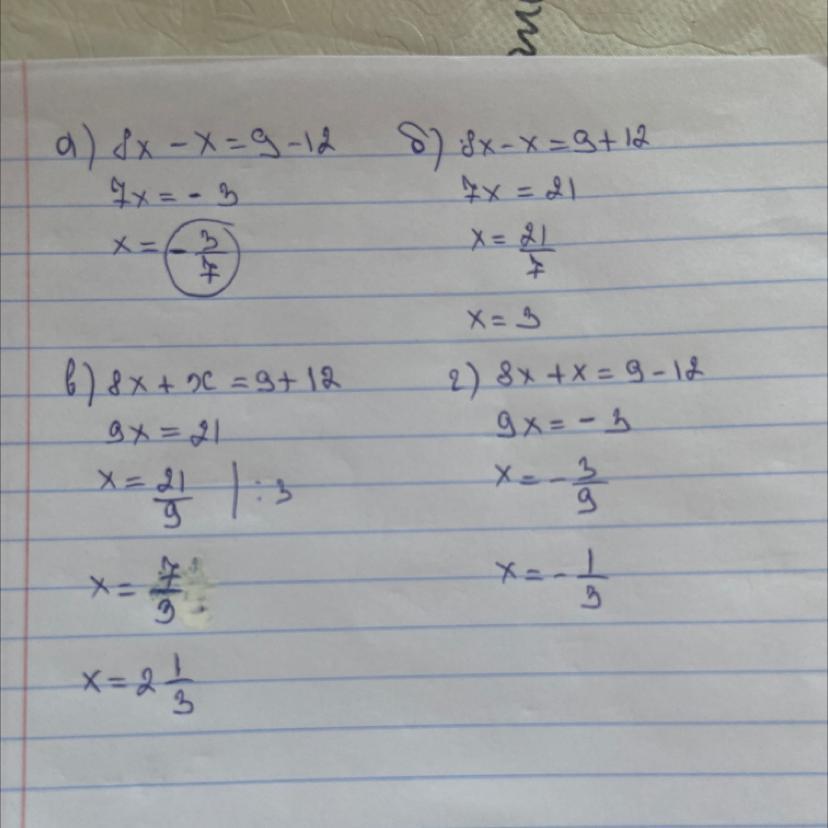 а) 8x - x = 9 - 12
7x = - 3
x = - 3/7
б) 8x - x = 9 + 12
7x = 21
x = 21/7
x = 3
в) 8x + x = 9 + 12
9x = 21
x = 21/9 | : 3
x = 7/3
x = 2 1/3
г) 8x + x = 9 - 12
9x = - 3
x = - 3/9
x = - 1/3